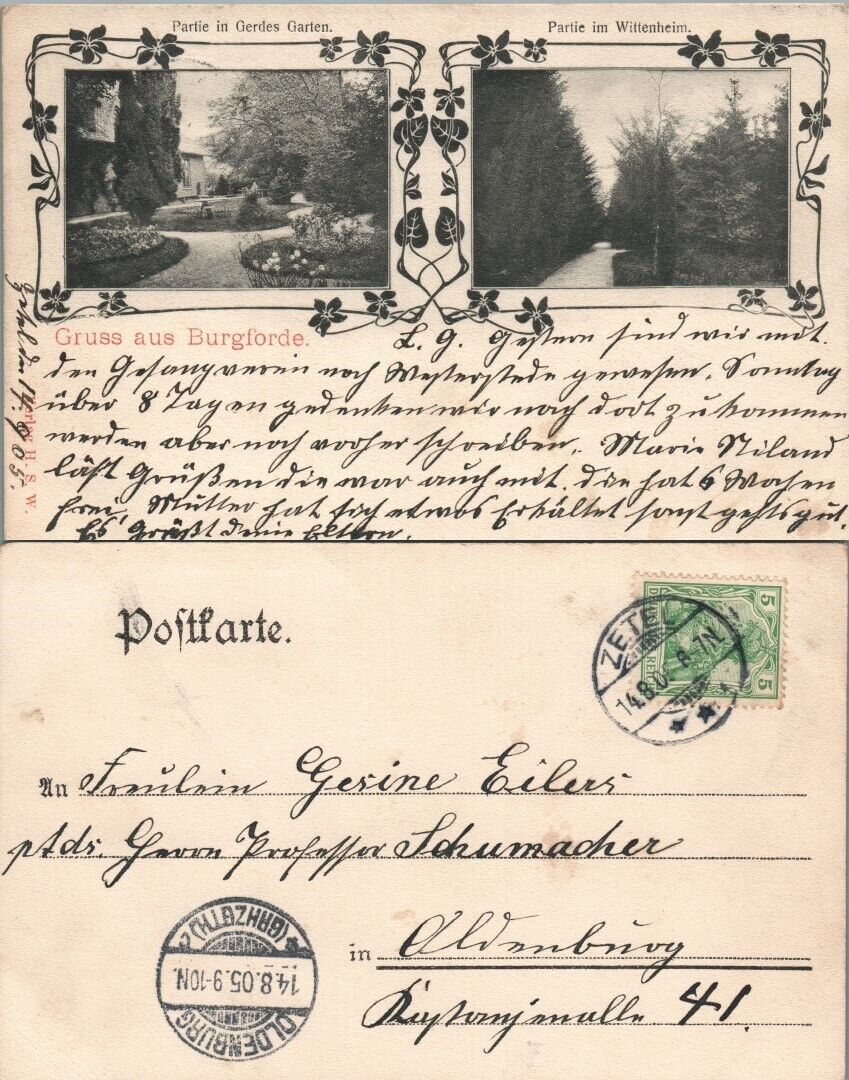 Partie in Gerdes Garten.
Partie im Wittenheim.
Gruss aus Burgforde.
L. G. Gestern sind wir mit
den Gesangverein nach Westerstede gewesen. Sonntag
über 8 Tagen gedenken wir nach dort zu kommen
werden aber noch vorher schreiben. Marie Niland
läßt Grüßen die war auch mit. die hat 6 Wochen
frei. Mutter hat sich etwas Erkältet sonst gehts gut.
Es Grüßt deine Eltern.
Zetel den 14. 05.
H. S. W.
Postkarte.
ZETEL
14.8.0 8-7N
5
5
An Freulein Gesine Eilers
ptds. Herrn Professor Schumacher
in Oldenburg
Kastanjenalle. 41.
OLDENBURG
14.8.05.9-10N.
(GRHZGTH.) 2